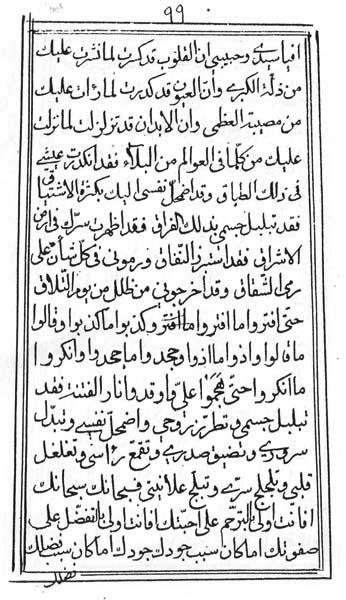 ٩٩
افیا سیدی و حبیبی ان القلوب قد کسرت لما نزلت علیك
من ذلة الکبری وان العیون قد کدرت لما رأت علیك
من مصیبة العظمی وان الابدان قد تزلزلت لما نزلت
علیك من کلما فی العوالم من البلاء فقد انکدرت عیشی
فی ذلك الطباق وقد اضمحل نفسی الیك بکثرة الاشتیاق
فقد تبلبل جسمی بذلك الفراق فقد اظهرت سرك فی ارض
الاشراق فقد استبرز النفاق ورمونی فی کل شأن علی
رمی الشقاق وقد اخرجونی من ظلل من یوم التلاق
حتی افتروا ما افتروا وکذبوا ما کذبوا وقالوا
ما قالوا واذوا ما اذوا وجحدوا ما جحدوا وانکروا
ما انکروا حتی هجموا علی واوقدوا نار الفتنة فقد
تبلبل جسمی وتطرزت روحی واضمحل نفسی وتبدل
سروری وتضیق صدری وتقمع رأسی وتغلغل
قلبی وتلجلج سری وتبلج علانیتی فسبحانك سبحانك
افانت اولی بالترحم علی احبتك افانت اولی بالتفضل علی
صفوتك اما کان سبب جودك جودك اما کان سبب فضلك
فضلك